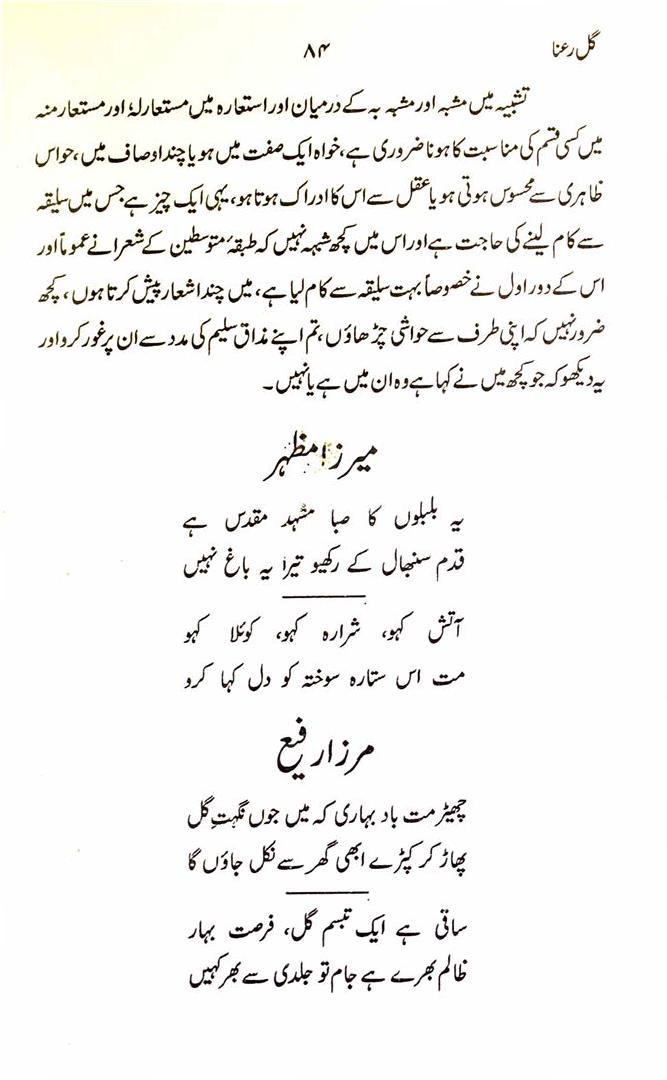 گل رعنا
۸۴
تشبیہ میں مشبہ اور مشبہ بہ کے درمیان اور استعارہ میں مستعارلۂ اور مستعار منہ
میں کسی قسم کی مناسبت کا ہونا ضروری ہے، خواہ ایک صفت میں ہو یا چند اوصاف میں، حواس
ظاہری سے محسوس ہوتی ہو یا عقل سے اس کا ادراک ہوتا ہو، یہی ایک چیز ہے جس میں سلیقہ
سے کام لینے کی حاجت ہے اور اس میں کچھ شبہہ نہیں کہ طبقۂ متوسطین کے شعرا نے عموماً اور
اس کے دور اول نے خصوصاً بہت سلیقہ سے کام لیا ہے، میں چند اشعار پیش کرتا ہوں، کچھ
ضرور نہیں کہ اپنی طرف سے حواشی چڑھاؤں، تم اپنے مذاق سلیم کی مدد سے ان پر غور کرو اور
یہ دیکھو کہ جو کچھ میں نے کہا ہے وہ ان میں ہے یا نہیں۔
میرزا مظہر
یہ بلبلوں کا صبا مشہد مقدس ہے
قدم سنبھال کے رکھیو تیرا یہ باغ نہیں
آتش کہو، شرارہ کہو، کوئلا کہو
مت اس ستارہ سوختہ کو دل کہا کرو
مرزا رفیع
چھیڑ مت باد بہاری کہ میں جوں نگہتِ گل
پھاڑ کر کپڑے ابھی گھر سے نکل جاؤں گا
ساقی ہے ایک تبسم گل، فرصت بہار
ظالم بھرے ہے جام تو جلدی سے بھر کہیں